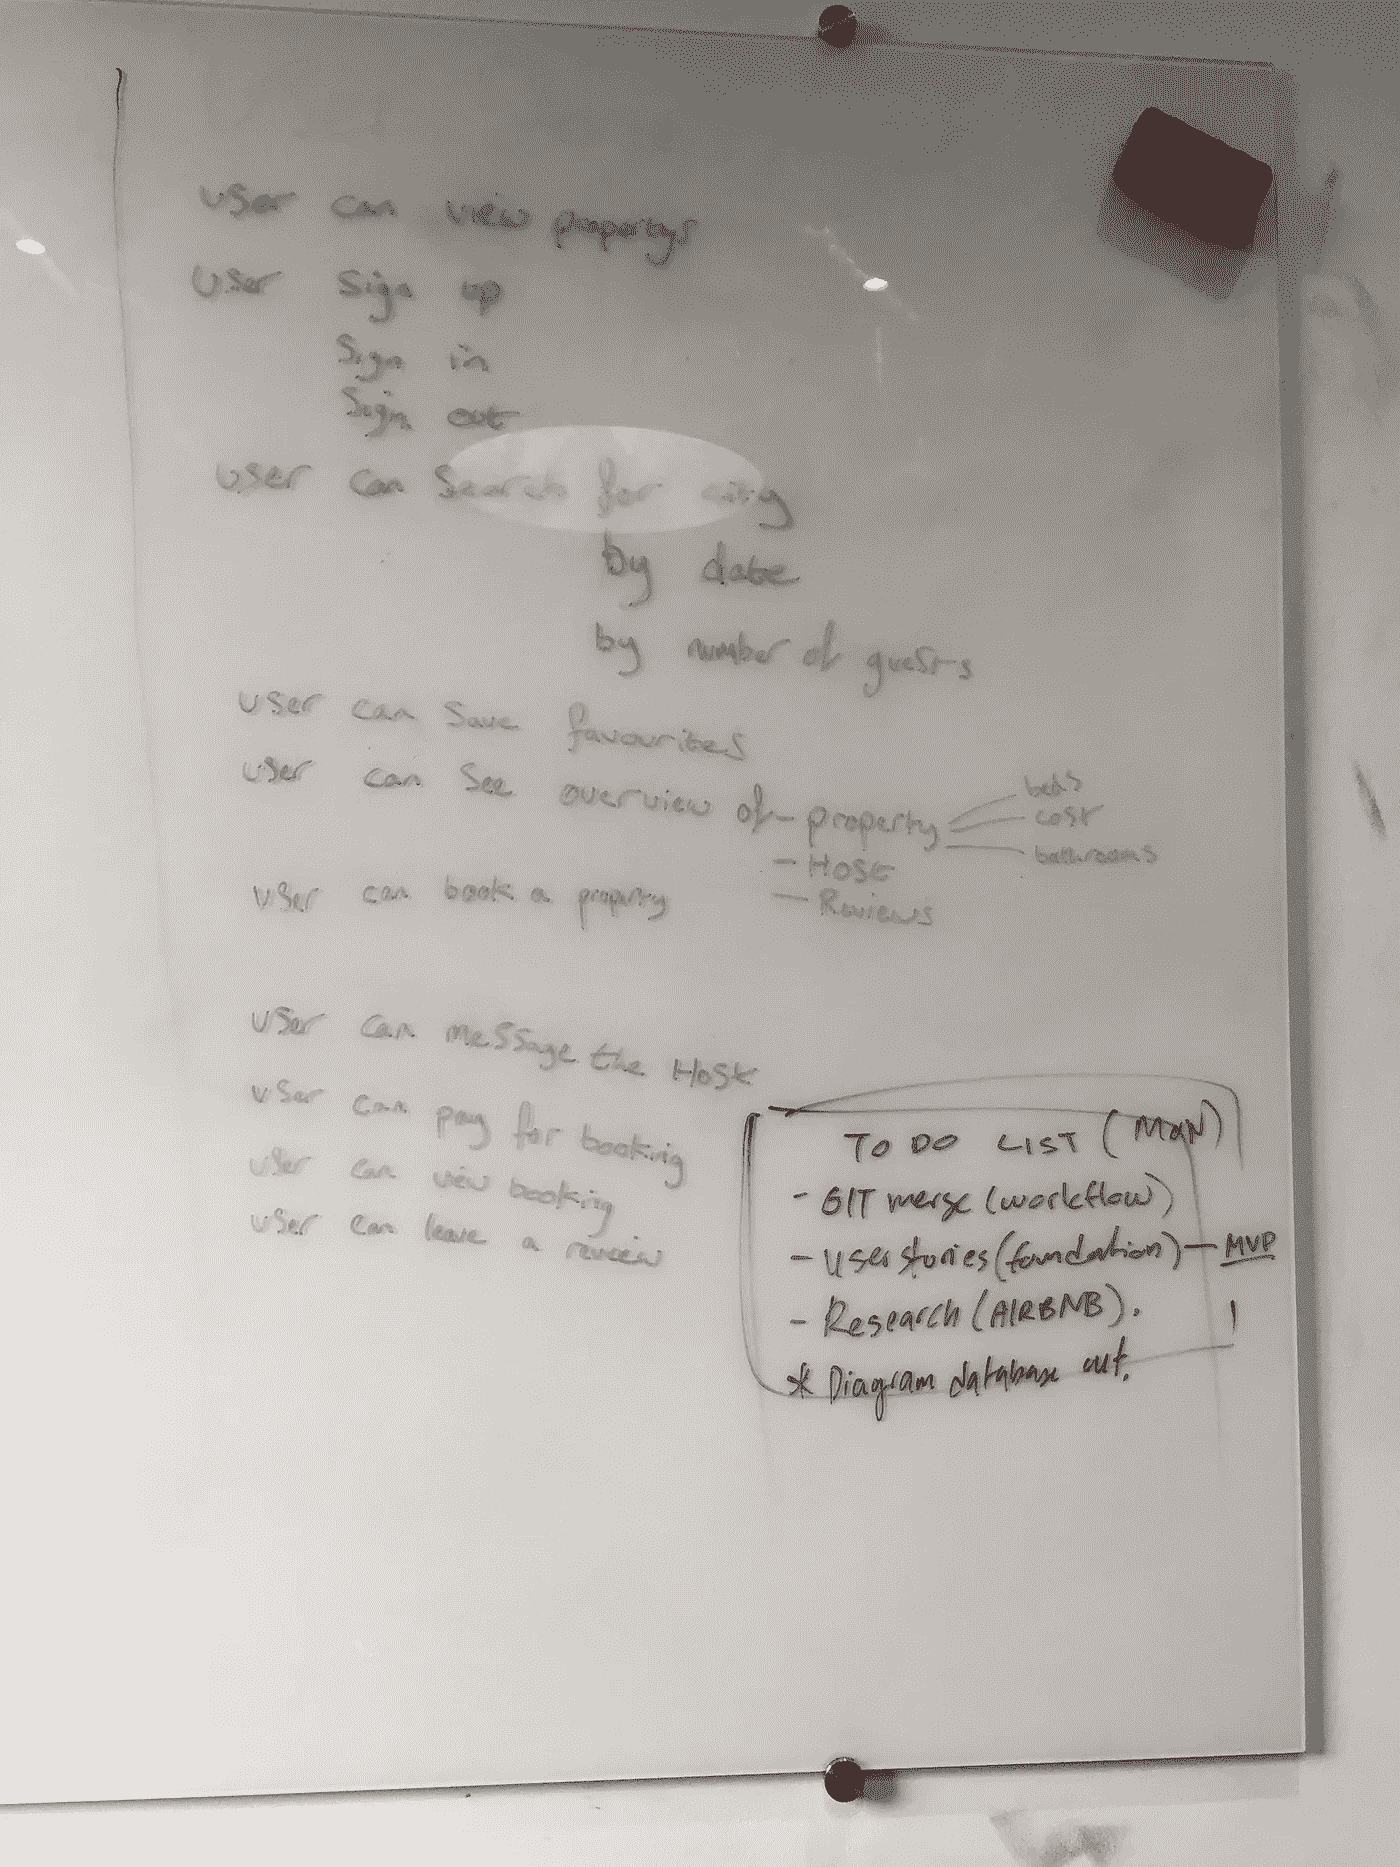 user can view propertys
User sign up
Sign in
Sign out
user can search for city
by date
by number of guests
user can save favourites
user can see overview of - property
beds
cost
bathrooms
- Host
- Reviews
user can book a property
user can message the Host
user can pay for booking
user can view booking
user can leave a review
TO DO LIST (MON)
- GIT merge (workflow)
- User stories (foundation) - MVP
- Research (AIRBNB).
* Diagram database out.